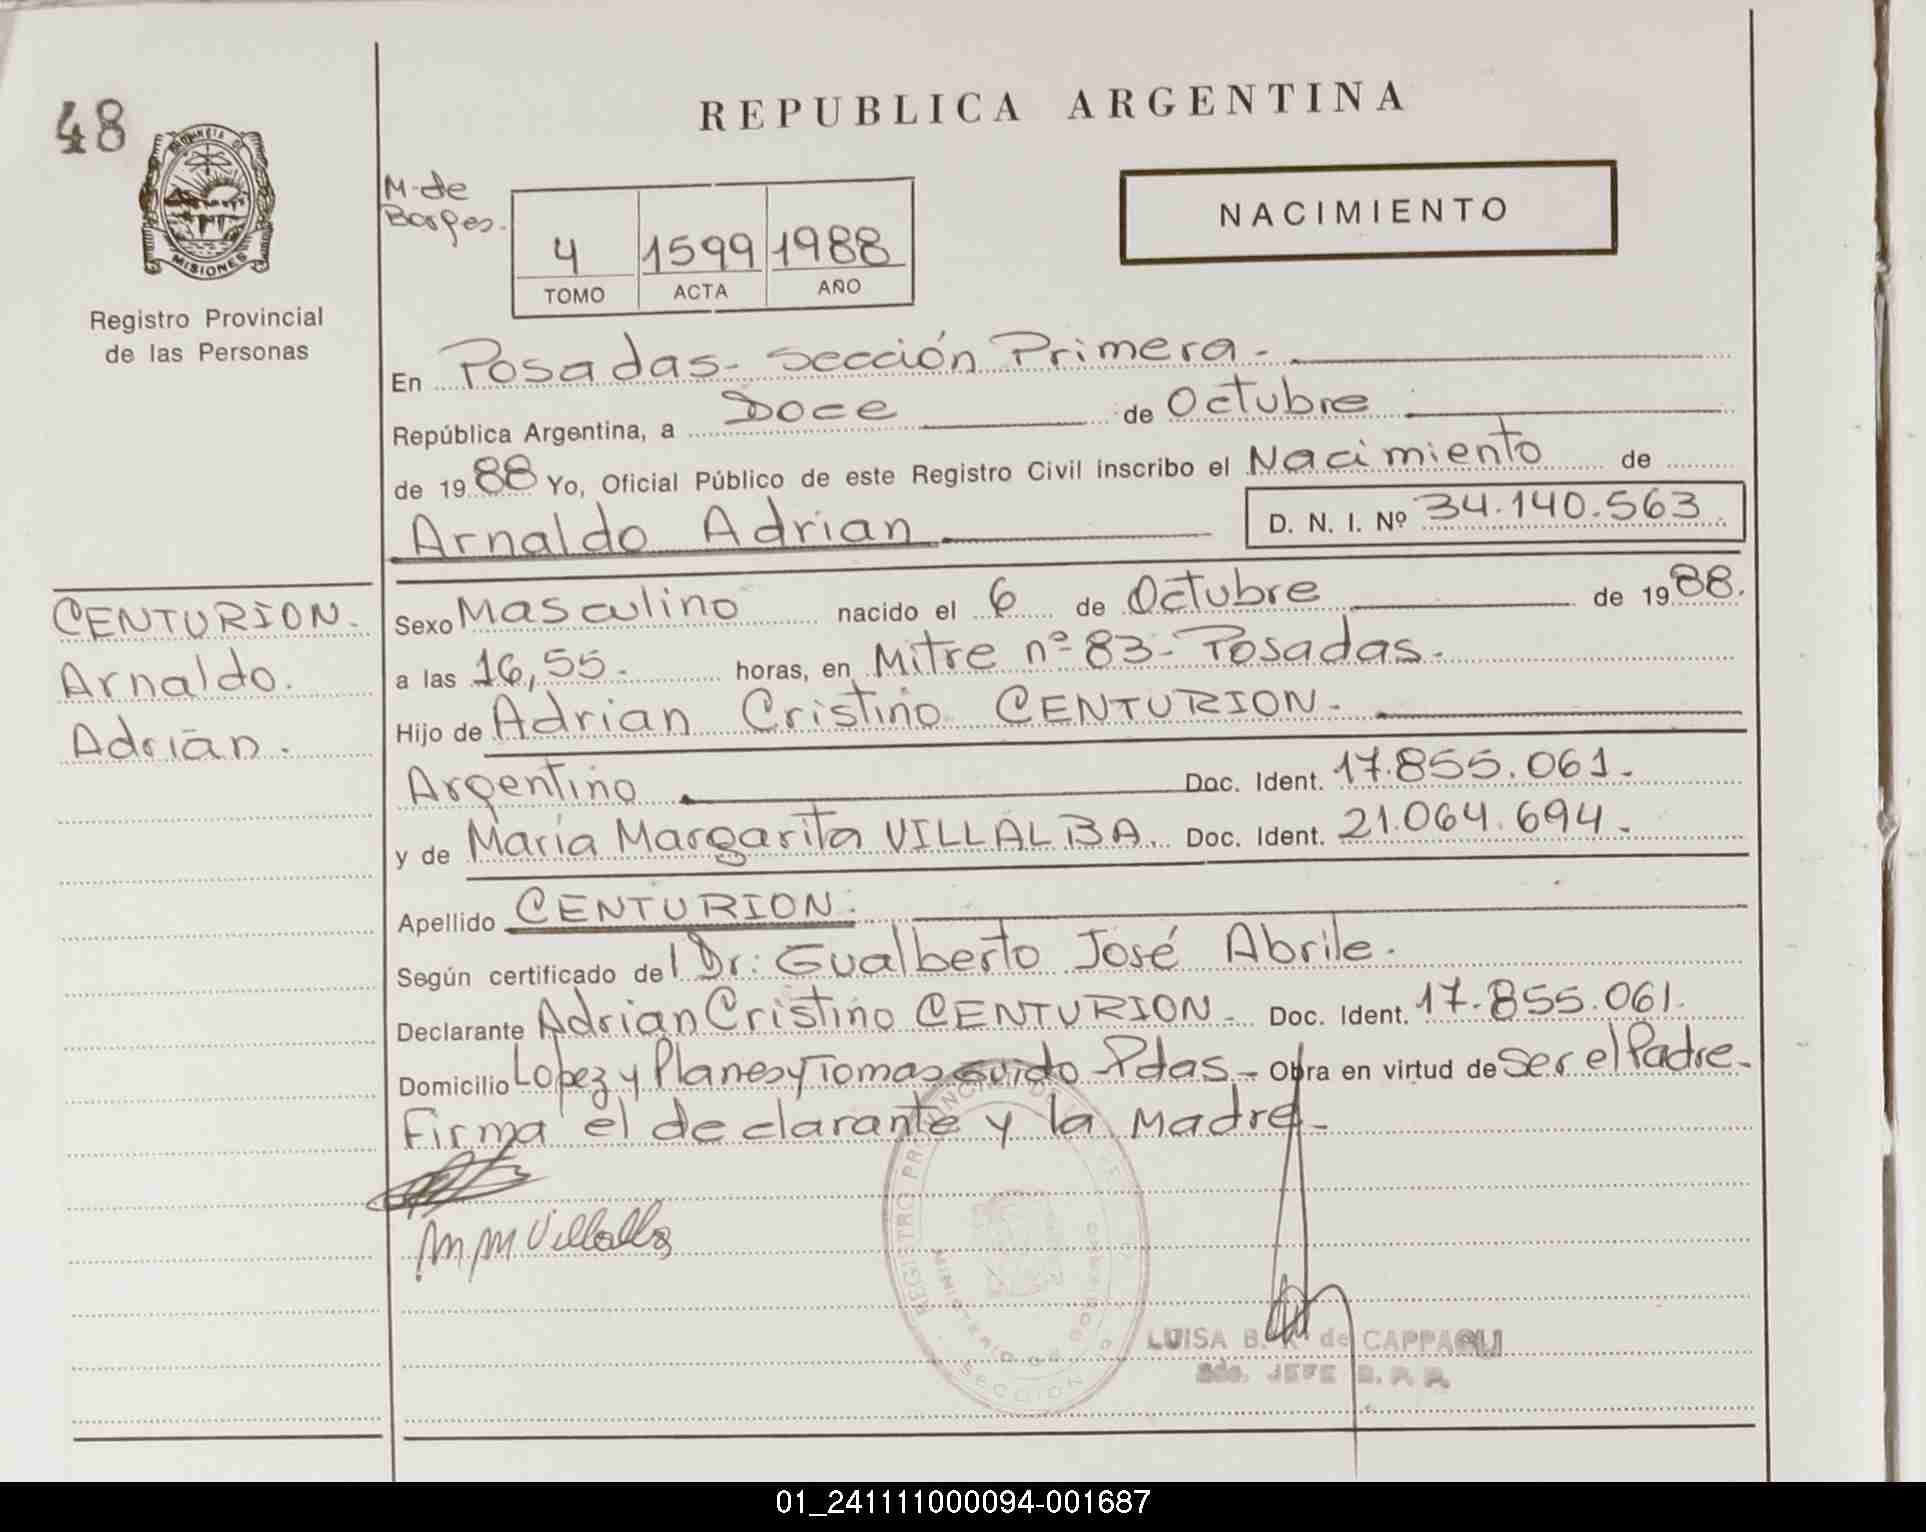 48
REPUBLICA ARGENTINA
PROVINCIA DE
MISIONES
Registro Provincial
de las Personas
M. de
Borges.
NACIMIENTO
4 1599 1988
TOMO ACTA AÑO
En Posadas - Sección Primera -
República Argentina, a Doce de Octubre
de 1988 Yo, Oficial Público de este Registro Civil inscribo el Nacimiento de
Arnaldo Adrian D. N. I. Nº 34.140.563
CENTURION.
Arnaldo.
Adrian.
Sexo Masculino nacido el 6 de Octubre de 1988.
a las 16,55. horas, en Mitre nº 83 - Posadas.
Hijo de Adrian Cristino CENTURION.
Argentino Doc. Ident. 17.855.061.
y de María Margarita VILLALBA. Doc. Ident. 21.064.694.
Apellido CENTURION.
Según certificado del Dr: Gualberto José Abrile.
Declarante Adrian Cristino CENTURION. Doc. Ident. 17.855.061.
Domicilio Lopez y Planes y Tomas Guido - Pdas - Obra en virtud de Ser el Padre -
Firma el declarante y la Madre -
M M Villalba
REGISTRO PROVINCIAL DE
MINISTERIO DE GOBIERNO
SECCION
LUISA B. K. de CAPPAGLI
JEFE
01_241111000094-001687